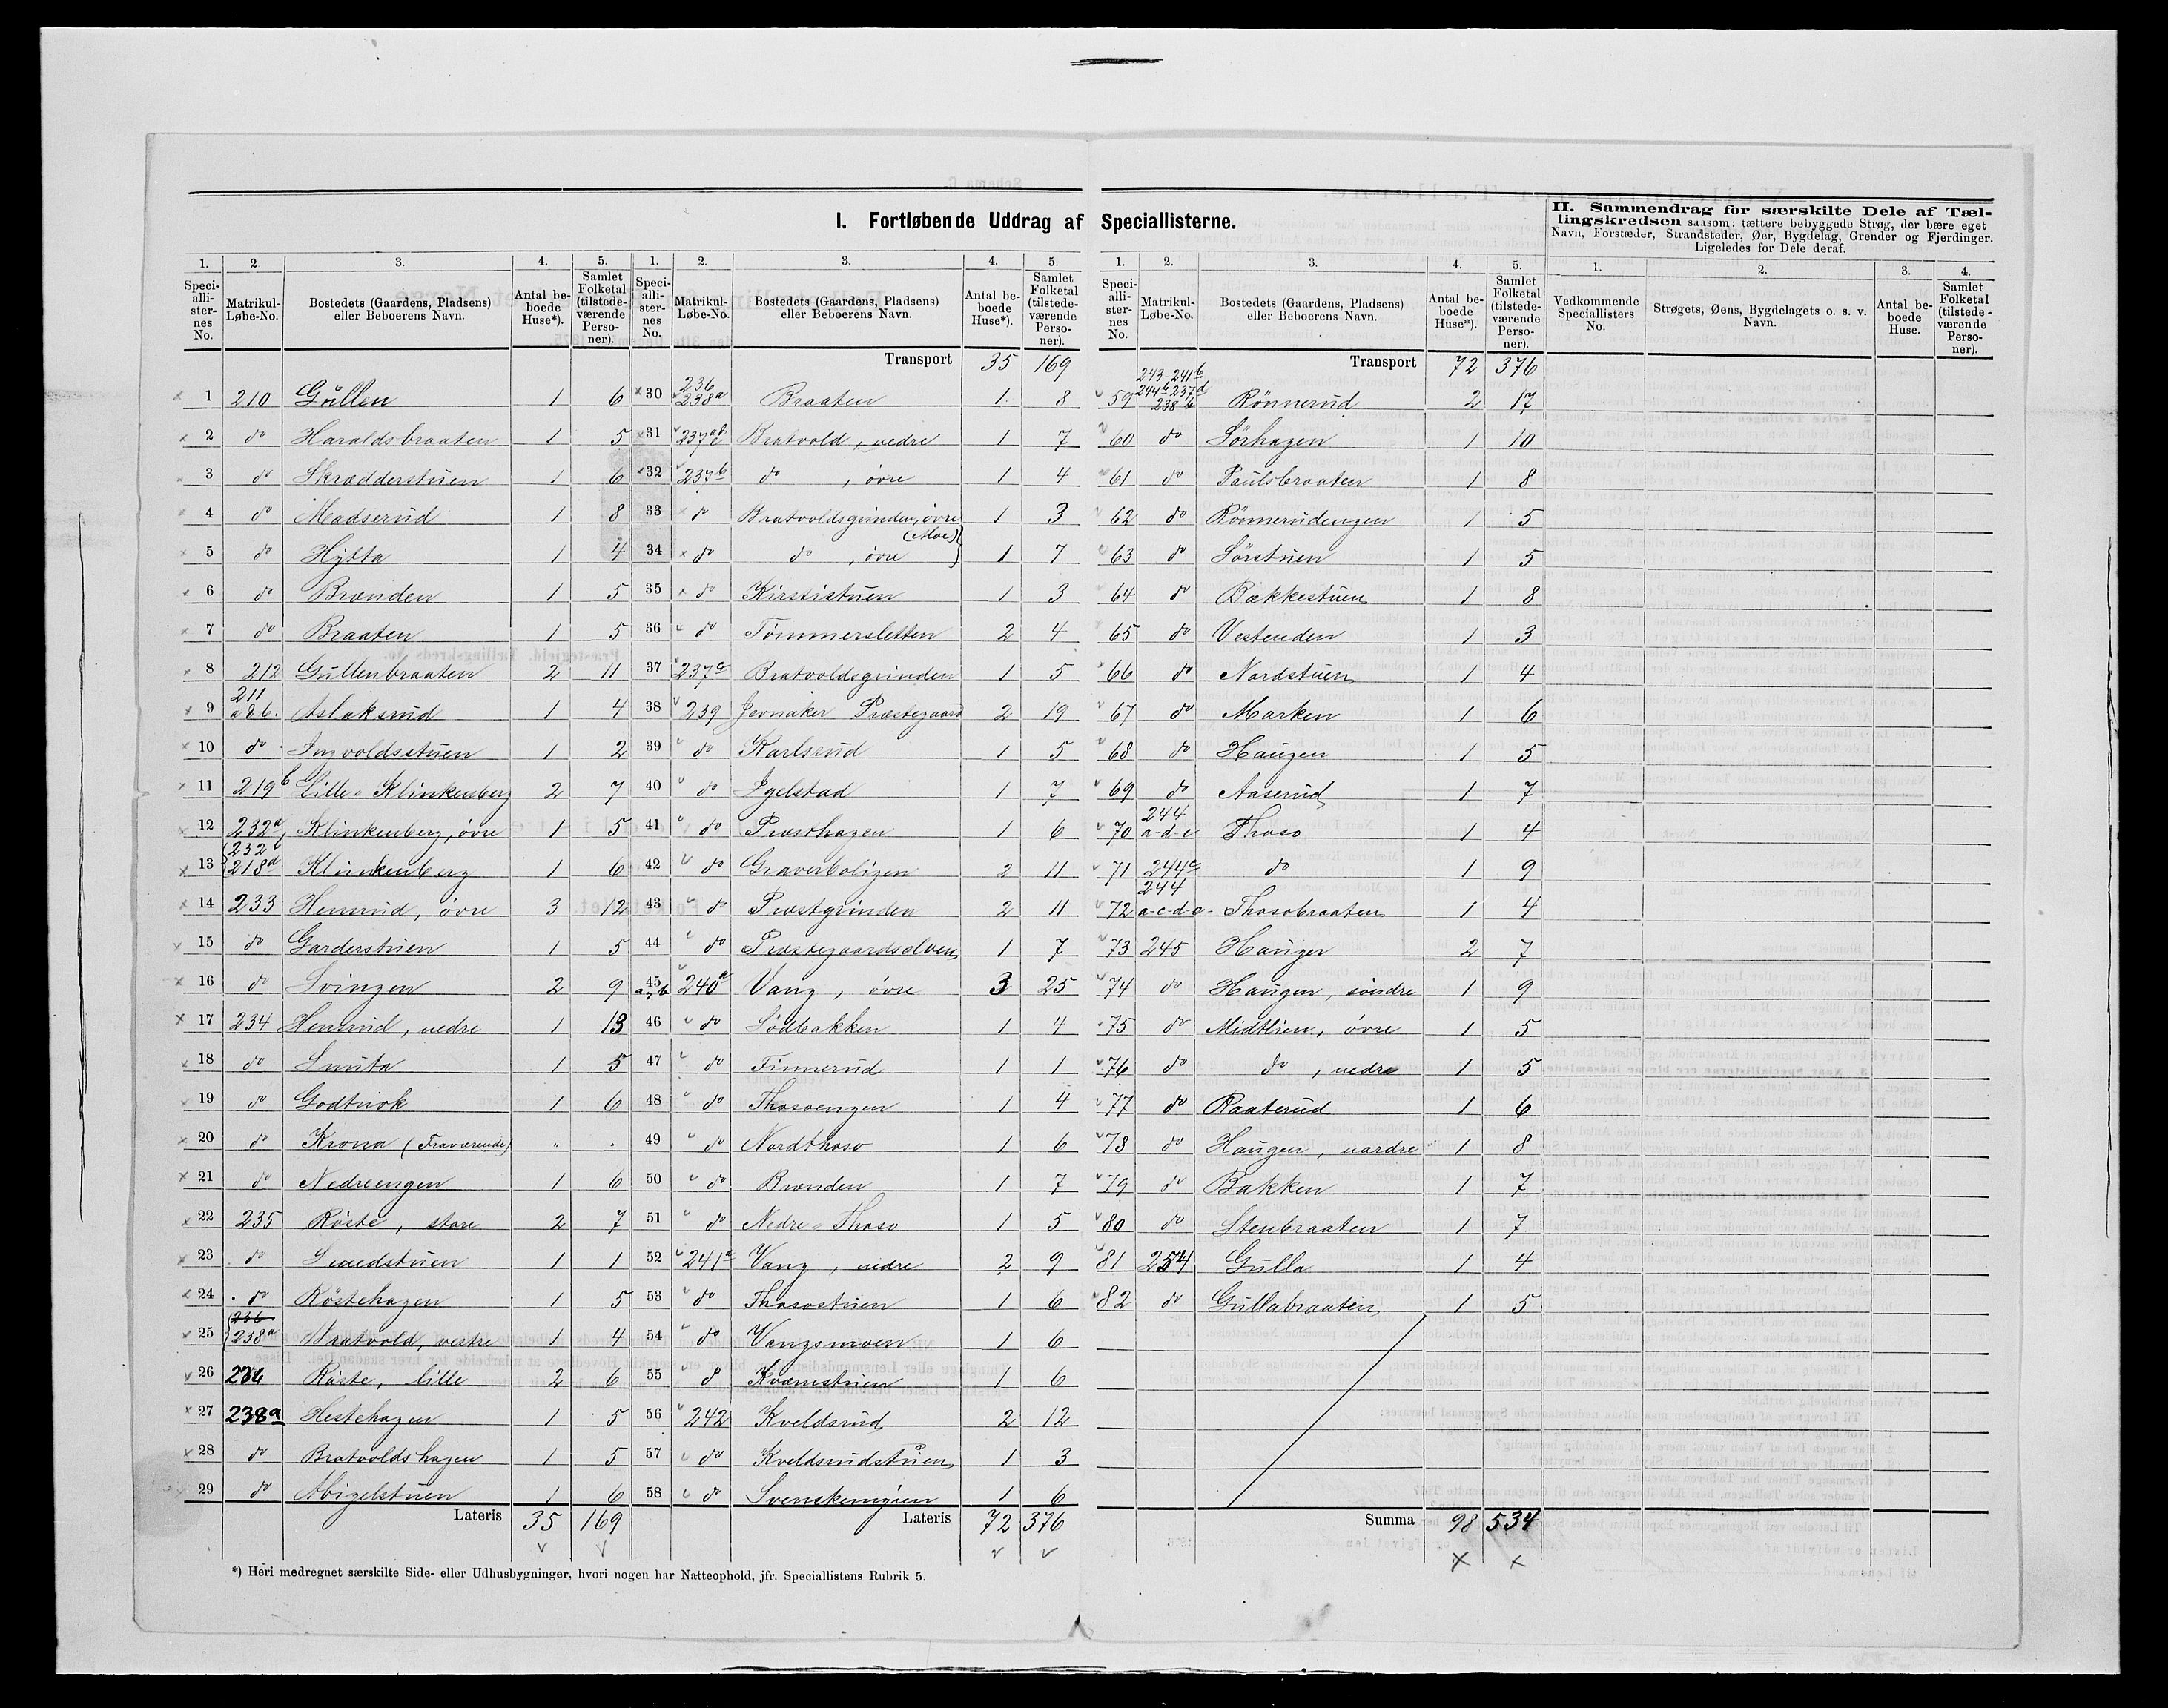 I. Fortløbende Uddrag af Speciallisterne.
II. Sammendrag for særskilte Dele af Tæl-
lingskredsen saasom: tættere bebyggede Strøg, der bære eget
Navn, Forstæder, Strandsteder, Øer, Bygdelag, Grender og Fjerdinger.
Ligeledes for Dele deraf.
1. 2 3. 4. 5.
Speci-alli-ster-nes No. Matrikul-Løbe-No. Bostedets (Gaardens, Pladsens) eller Beboerens Navn. Antal be-boede Huse*). Samlet Folketal (tilstede-værende Perso-ner).
1 210 Gullen 1 6
2 do Haraldsbraaten 1 5
3 do Skrædderstuen 1 6
4 do Madserud 1 8
5 do Hytta 1 4
6 do Brænden 1 5
7 do Braaten 1 5
8 212 Gullenbraaten 2 11
9 211 a & b. Aslaksrud 1 4
10 do Ingvoldsstuen 1 2
11 219b Lille-Klinkenberg 2 7
12 232a Klinkenberg, øvre 1 5
13 232 218a Klinkenberg 1 6
14 233 Hensrud, øvre 3 12
15 do Garderstuen 1 5
16 do Svingen 2 9
17 234 Hensrud, nedre 1 13
18 do Snuta 1 5
19 do Godtnok 1 6
20 do Krona (Fraværende) " .
21 do Nedreengen 1 6
22 235 Röste, store 2 7
23 do Smedstuen 1 1
24 do Röstehagen 1 5
25 236 238a Bratvold, vestre 1 4
26 236 Röste, lille 2 6
27 238a Hestehagen 1 5
28 do Bratvoldshagen 1 5
29 do Abigelstuen 1 6
Lateris 35 169
1. 2. 3. 4. 5.
Speci-alli-ster-nes No. Matrikul-Løbe-No. Bostedets (Gaardens, Pladsens) eller Beboerens Navn. Antal be-boede Huse*). Samlet Folketal (tilstede-værende Perso-ner).
Transport 35 169
30 236 238a Braaten 1 8
31 237 Bratvold, nedre 1 7
32 237b do, øvre 1 4
33 do Bratvoldsgrinden, øvre (Moe) 1 3
34 do do, øvre 1 7
35 do Kirstistuen 1 3
36 do Tömmersletten 2 4
37 237c Bratvoldsgrinden 1 5
38 239 Jevnaker Præstegaard 2 19
39 do Karlsrud 1 5
40 do Igelstad 1 7
41 do Præsthagen 1 6
42 do Graverboligen 2 11
43 do Præstgrinden 2 11
44 do Præstegaardselven 1 7
45 a, b 240a Vang, øvre 3 25
46 do Södbakken 1 4
47 do Finnerud 1 1
48 do Thosoengen 1 4
49 do Nordthoso 1 6
50 do Brænden 1 7
51 do Nedre-Thoso 1 5
52 241a Vang, nedre 2 9
53 do Thosostuen 1 6
54 do Vangsmoen 1 6
55 do Kværnstuen 1 6
56 242 Kveldsrud 2 12
57 do Kveldsrudstuen 1 3
58 do 1 6
Lateris 72 376
1. 2. 3. 4. 5.
Speci-alli-ster-nes No. Matrikul-Løbe-No. Bostedets (Gaardens, Pladsens) eller Beboerens Navn. Antal be-boede Huse*). Samlet Folketal (tilstede-værende Perso-ner).
Transport 72 376
59 243-241b 244b 237d 238b Rönnerud 2 17
60 do Sörhagen 1 10
61 do Paulsbraaten 1 8
62 do Rönnerudengen 1 5
63 do Sörstuen 1 5
64 do Bakkestuen 1 8
65 do Vestenden 1 3
66 do Nordstuen 1 4
67 do Marken 1 6
68 do Haugen 1 5
69 do Aaserud 1 7
70 244 a-d-e Thoso 1 4
71 244c do 1 9
72 244 a-c-d-e- Thosobraaten 1 4
73 245 Haugen 2 7
74 do Haugen, söndre 1 9
75 do Midtlien, øvre 1 5
76 do do, nedre 1 5
77 do Raaterud 1 6
78 do Haugen, nordre 1 8
79 do Bakken 1 7
80 do Stenbraaten 1 7
81 254 Gulla 1 4
82 do Gullabraaten 1 5
Summa 98 534
1. 2. 3. 4.
Vedkommende Speciallisters No. Strøgets, Øens, Bygdelagets o. s. v. Navn. Antal be-boede Huse. Samlet Folketal (tilstede-værende Perso-ner).
*) Heri medregnet særskilte Side- eller Udhusbygninger, hvori nogen har Natteophold, jfr. Speciallistens Rubrik 5.